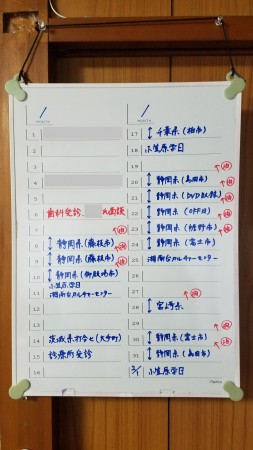 1
MONTH
1
2
3
4
5
6 歯科受診 面談
7
8 静岡県(藤枝市)
9 静岡県(藤枝市)
10 静岡県(御殿場市)
11 小笠原学日
12 湘南台カルチャーセンター
13
14 茨城県打合せ(大手町)
15 診療所受診
16
1
MONTH
17 千葉県(柏市)
18 小笠原学日
19
20 静岡県(島田市)
21 静岡県(DVD収録)
22 静岡県(OFF日)
23 静岡県
24 静岡県(富士市)
25 湘南台カルチャーセンター
26
27
28 宮崎県
29
30 静岡県(富士市)
31 静岡県(島田市)
2/1 小笠原学日